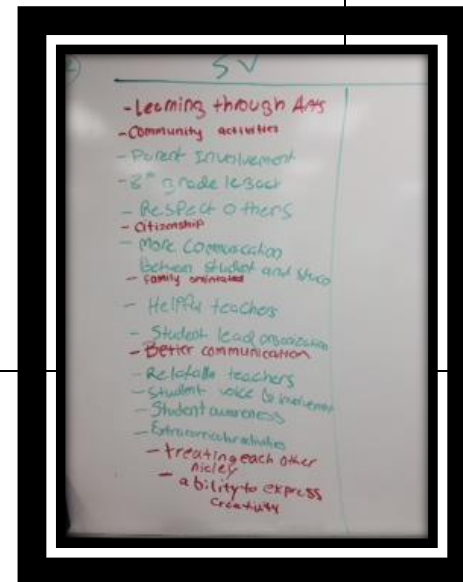 SV
- Learning through Arts
- Community activities
- Parent Involvement
- 8th grade legacy
- Respect Others
- Citizenship
- More Communication
Between student and stuco
- family orientated
- Helpful teachers
- Student lead organization
- Better communication
- Relatable teachers
- Student voice & involvement
- Student awareness
- Extracurricular activities
- treating each other
nicley
- ability to express
Creativity